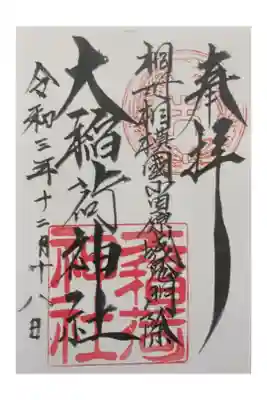 奉拝
相模國小田原城
大稲荷神社
令和三年十二月十八日
大稲荷
神社